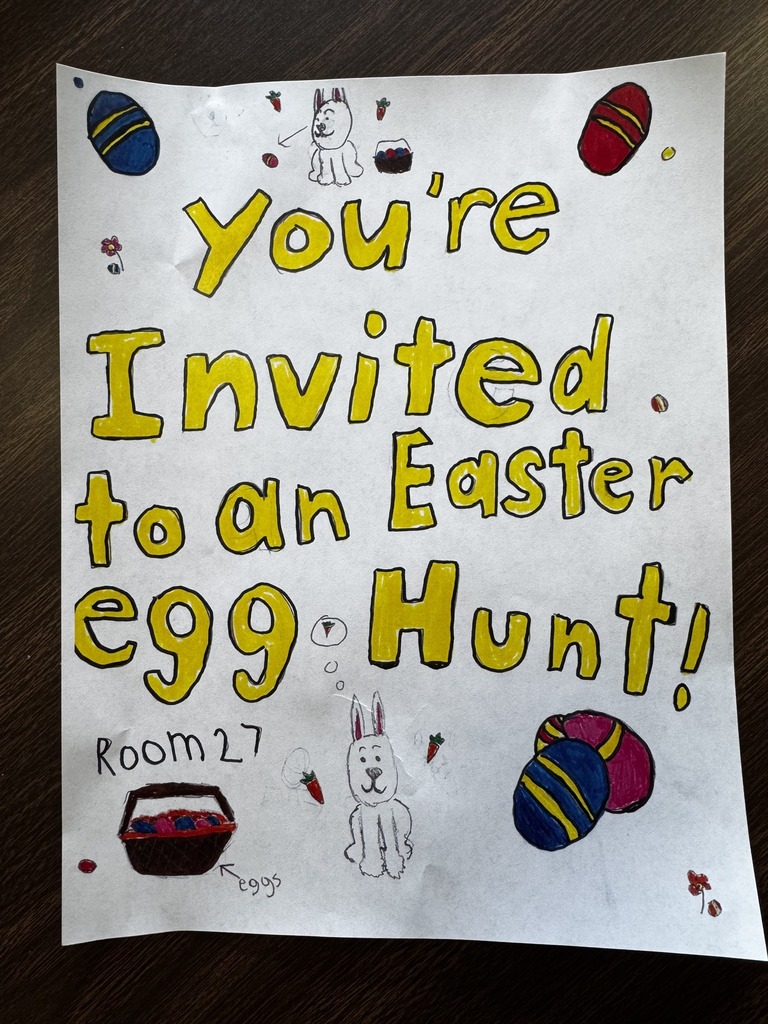 You're
Invited
to an Easter
egg Hunt!
ROOM 27
eggs